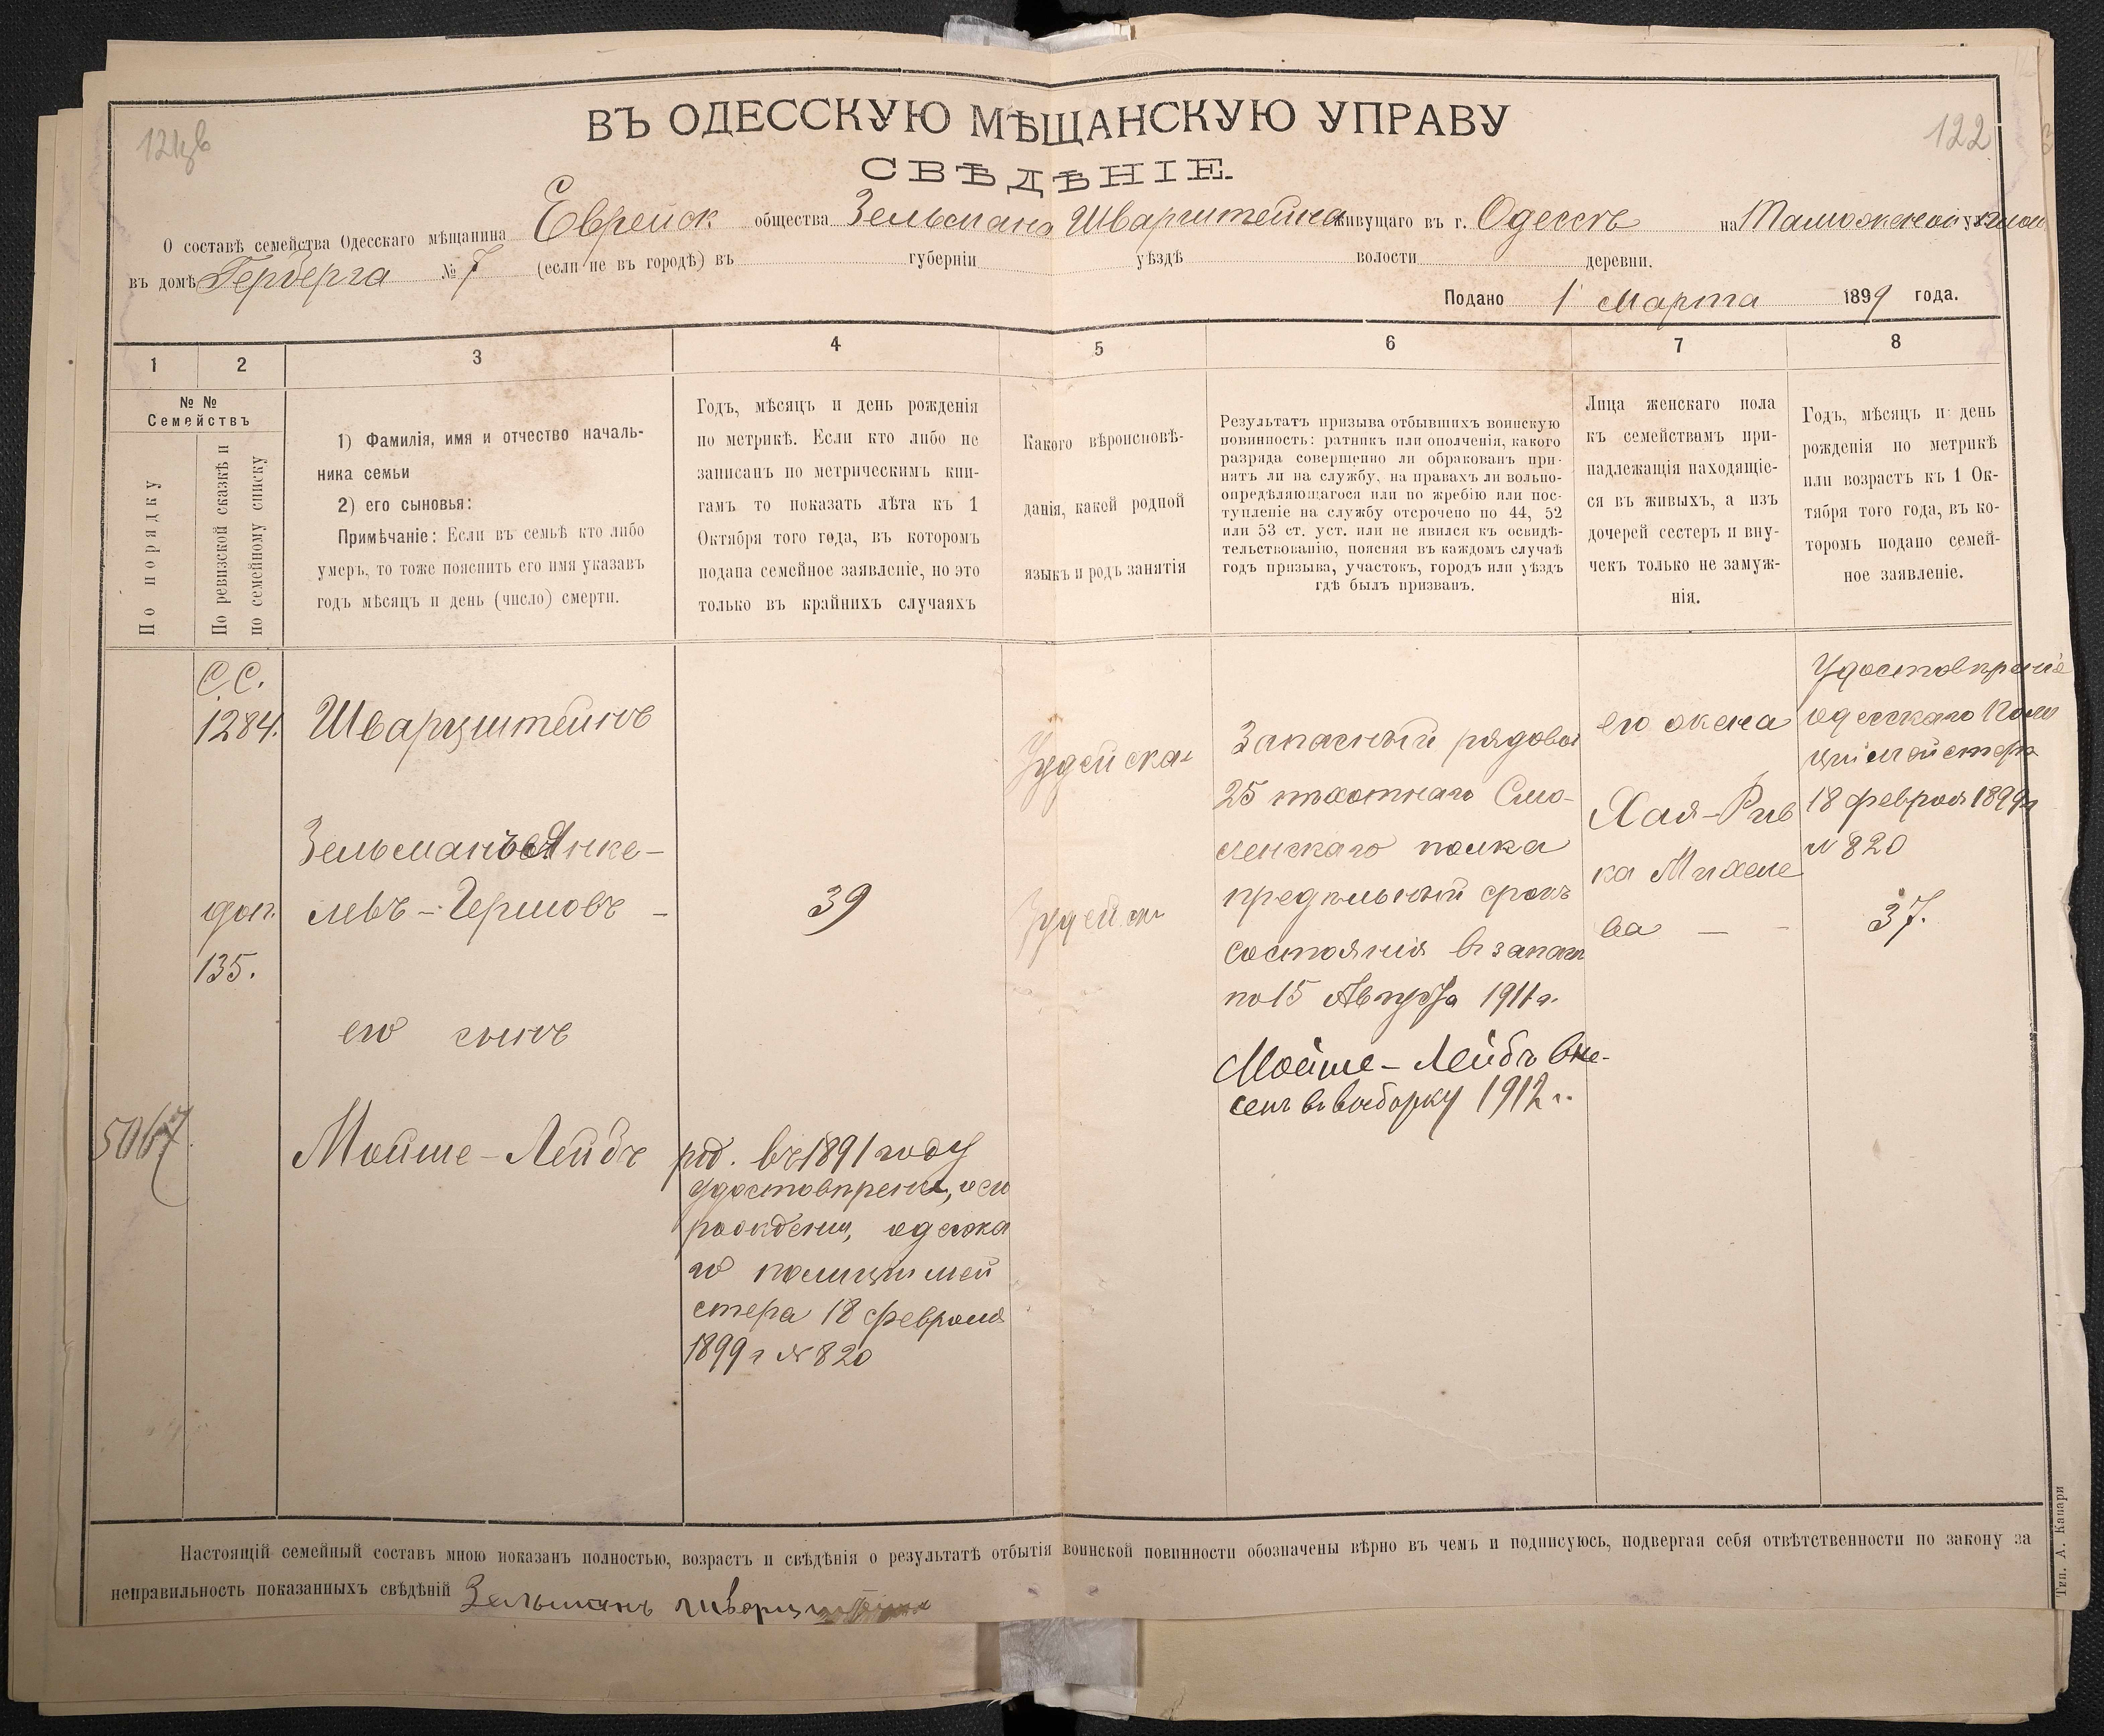 ВЪ ОДЕССКУЮ МѢЩАНСКУЮ УПРАВУ
122
СВѢДѢНІЕ.
О составѣ семейства Одесскаго мѣщанина Еврейск общества Зельмана Шварцштейна живущаго въ г. Одессѣ на Таможеной ул
въ домѣ Герберга № 7 (если не въ городѣ) въ губерніи уѣздѣ волости деревни.
Подано 1 Марта 1899 года.
1 2 3 4 5 6 7 8
№ №
Семействъ
По порядку
По ревизской сказкѣ и
по семейному списку
1) Фамилія, имя и отчество началь-
ника семьи
2) его сыновья:
Примѣчаніе: Если въ семьѣ кто либо
умеръ, то тоже пояснить его имя указавъ
годъ мѣсяцъ и день (число) смерти.
Годъ, мѣсяцъ и день рожденія
по метрикѣ. Если кто либо не
записанъ по метрическимъ кни-
гамъ то показать лѣта къ 1
Октября того года, въ которомъ
подана семейное заявленіе, но это
только въ крайнихъ случаяхъ
Какого вѣроисповѣ-
данія, какой родной
языкъ и родъ занятія
Результатъ призыва отбывшихъ воинскую
повинность: ратникъ или ополченія, какого
разряда совершенно ли обракованъ при-
нятъ ли на службу, на правахъ ли вольно-
опредѣляющагося или по жребію или пос-
тупленіе на службу отсрочено по 44, 52
или 53 ст. уст. или не явился къ освидѣ-
тельствованію, поясняя въ каждомъ случаѣ
годъ призыва, участокъ, городъ или уѣздъ
гдѣ былъ призванъ.
Лица женскаго пола
къ семействамъ при-
надлежащія находящіе-
ся въ живыхъ, а изъ
дочерей сестеръ и вну-
чекъ только не замуж-
нія.
Годъ, мѣсяцъ и день
рожденія по метрикѣ
или возрастъ къ 1 Ок-
тября того года, въ ко-
торомъ подано семей-
ное заявленіе.
С.С.
1284.
доп.
135.
Шварцштейнъ
Зельманъ Янке-
левъ-Гершовъ –
его сынъ
Мойше-Лейбъ
39
род. въ 1891 году
удостовѣрени, о его
рожденіи, одесска
го полицимей
стера 18 февраля
1899 г № 820
Іудейска
Запасный рядовой
25 пѣхотнаго Смо-
ленскаго полка
предѣльный срокъ
состоянія въ запасѣ
по 15 Августа 1911 г.
Мойше-Лейбъ вне-
сенъ въ выборку 1912 г.
его жена
Хая-Рив
ка Михеле
ва – –
Удостовѣреніе
одесскаго Поли
циймейстера
18 февраля 1899 г
№ 820
37.
Настоящій семейный составъ мною показанъ полностью, возрастъ и свѣдѣнія о результатѣ отбытія воинской повинности обозначены вѣрно въ чемъ и подписуюсь, подвергая себя отвѣтственности по закону за
неправильность показанныхъ свѣдѣній Зельманъ Шварцштейнъ
Тип. А. Капари